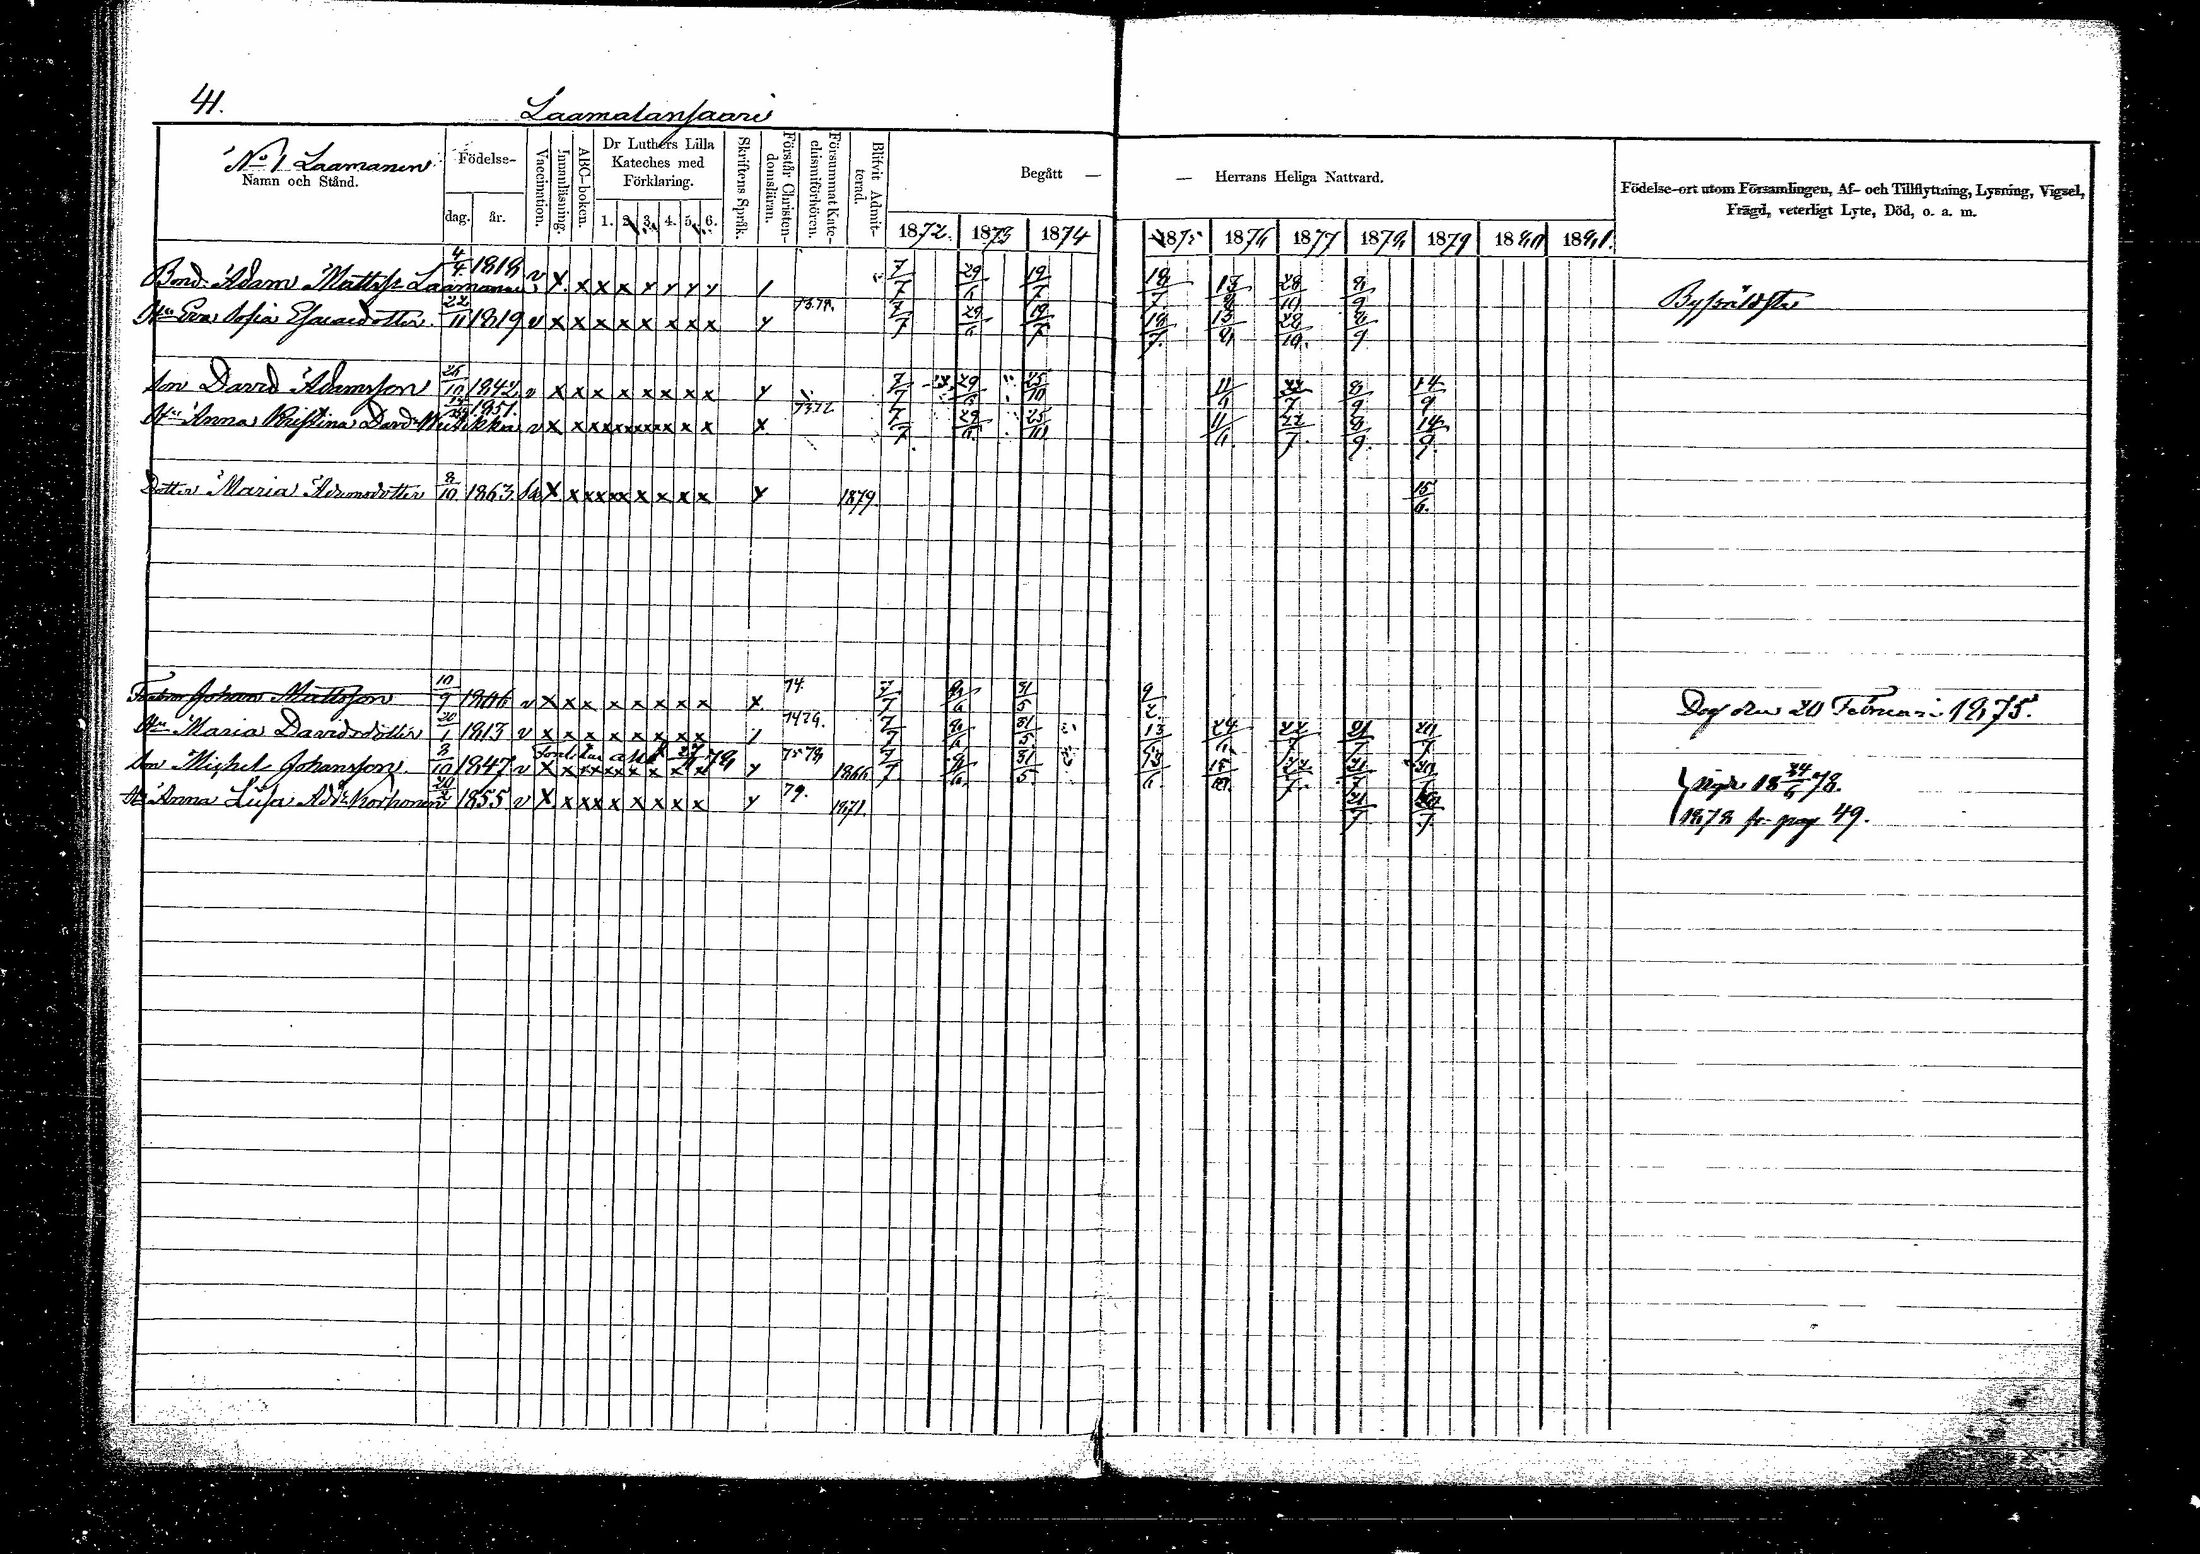 41.
Laamalansaari
No 1 Laamanen
Namn och Stånd.
Födelse-
dag.
år.
Vaccination.
Innanläsning.
ABC-boken.
Dr Luthers Lilla
Kateches med
Förklaring.
1. 2. 3. 4. 5. 6.
Skriftens Språk.
Förstår Christen-
domsläran.
Försummat Kate-
chismiförhören.
Blifvit Admit-
terad.
Begått —
— Herrans Heliga Nattvard.
1872. 1873 1874 1875 1876 1877 1878 1879 1880 1881.
Födelse-ort utom Församlingen, Af- och Tillflyttning, Lysning, Vigsel,
Frägd, veterligt Lyte, Död, o. a. m.
Bond. Adam Mattss. Laamanen 4/4 1818 v x x x x y y y y 7/7 29/6 19/7 18/7 13/8 28/10 8/9
Hu Eva Sofia Esaiasdotter 22/11 1819 v x x x x x x x x y 73.79. 7/7 29/6 19/7 18/7 13/8 28/10 8/9 Byfvåldste
Son David Adamsson 26/10 1842 v x x x x x x x x y 7/7 29/6 25/10 11/6 22/7 8/9 14/9
Hu Anna Kristina Davdr Weikkai 1851. v x x x x x x x x x 7372 7/7 29/6 25/10 11/6 22/7 8/9 14/9
Dotter Maria Adamsdotter 8/10 1863 x x x x x x x x y 1879. 15/6.
Johan Mattsson 10/9 1806 v x x x x x x x x x 74. 7/7 8/6 31/5 9/2 Dog den 20 Februari 1875.
Hu Maria Davidsdotter 20/1 1813 v x x x x x x x x 7479. 7/7 8/6 31/5 13/6 24/6 22/7 21/7 20/7
Son Michel Johansson 3/10 1847 v x x x x x x x x y 7578 1866 7/7 8/6 31/5 13/6 18/ 22/7 21/7 20/7 vigde 18 24/6 78.
Hu Anna Lisa Adr Korhonen 1855 v x x x x x x x x y 79. 1871. 21/7 20/7 1878 fr. pag 49.